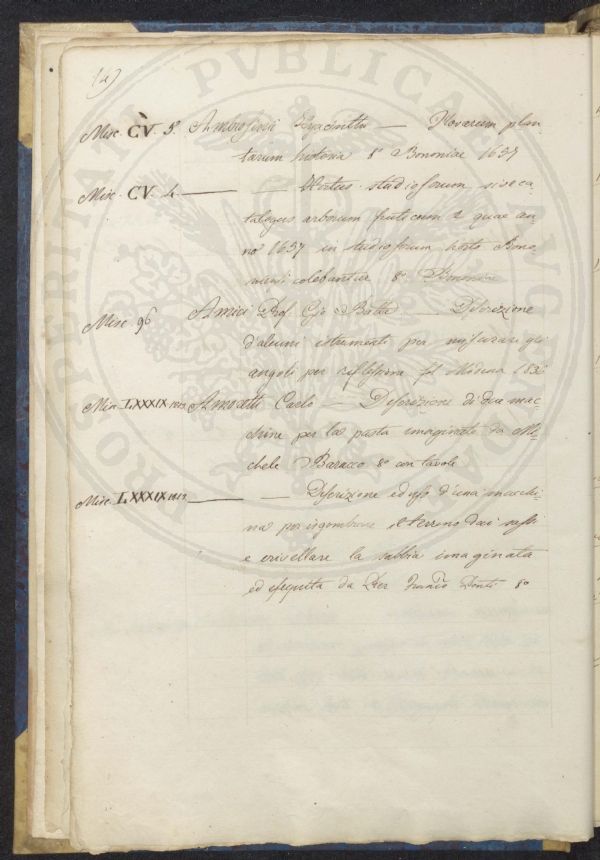 (2)
Misc. CV. 5° Ambrosinij Hyacinthi — Novarum plan-
tarum historia 8° Bononiae 1657
Misc. CV. 4. — — Hortus studiosorum sive ca-
talogus arborum fruticum & quae an-
no 1657 in studiosorum horto Bono-
niensi colebantur 8° Bononiae
Misc. 96 Amici Prof. Gio Batta — Descrizione
d'alcuni istrumenti per misurare gli
angoli per riflessione fol Modena
Misc. LXXXIX Amoretti Carlo — Descrizione di due mac-
chine per la pasta imaginate da Mi-
chele Baracco 8° con tavole
Misc. LXXXIX — — Descrizione ed uso d'una macchi-
na per isgombrare il terreno dai sassi
e crivellare la sabbia imaginata
ed eseguita da Donti 8°
PROSPERIANA PUBLICA AUGUSTA